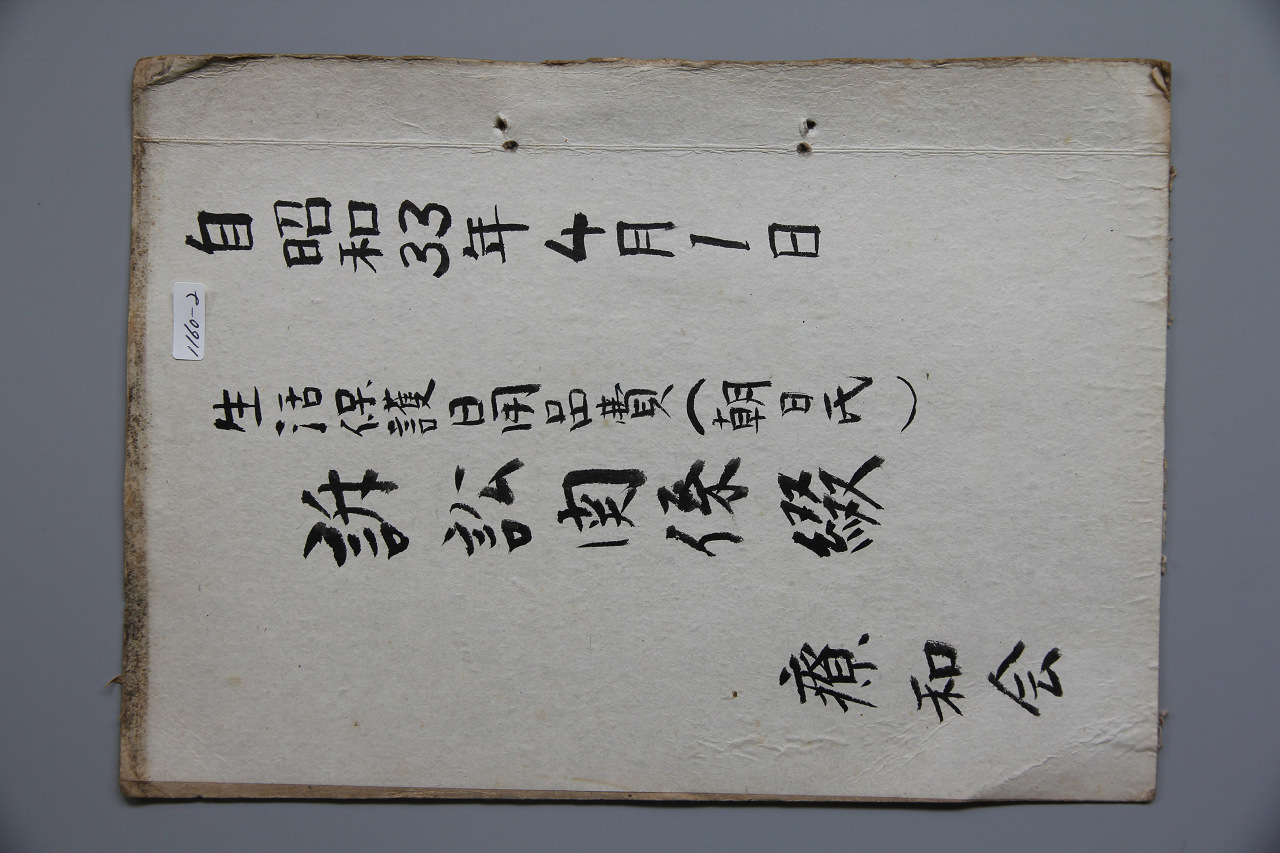 自昭和33年4月1日
1160-2
生活保護日用品費(朝日氏)
訴訟関係綴
療和会